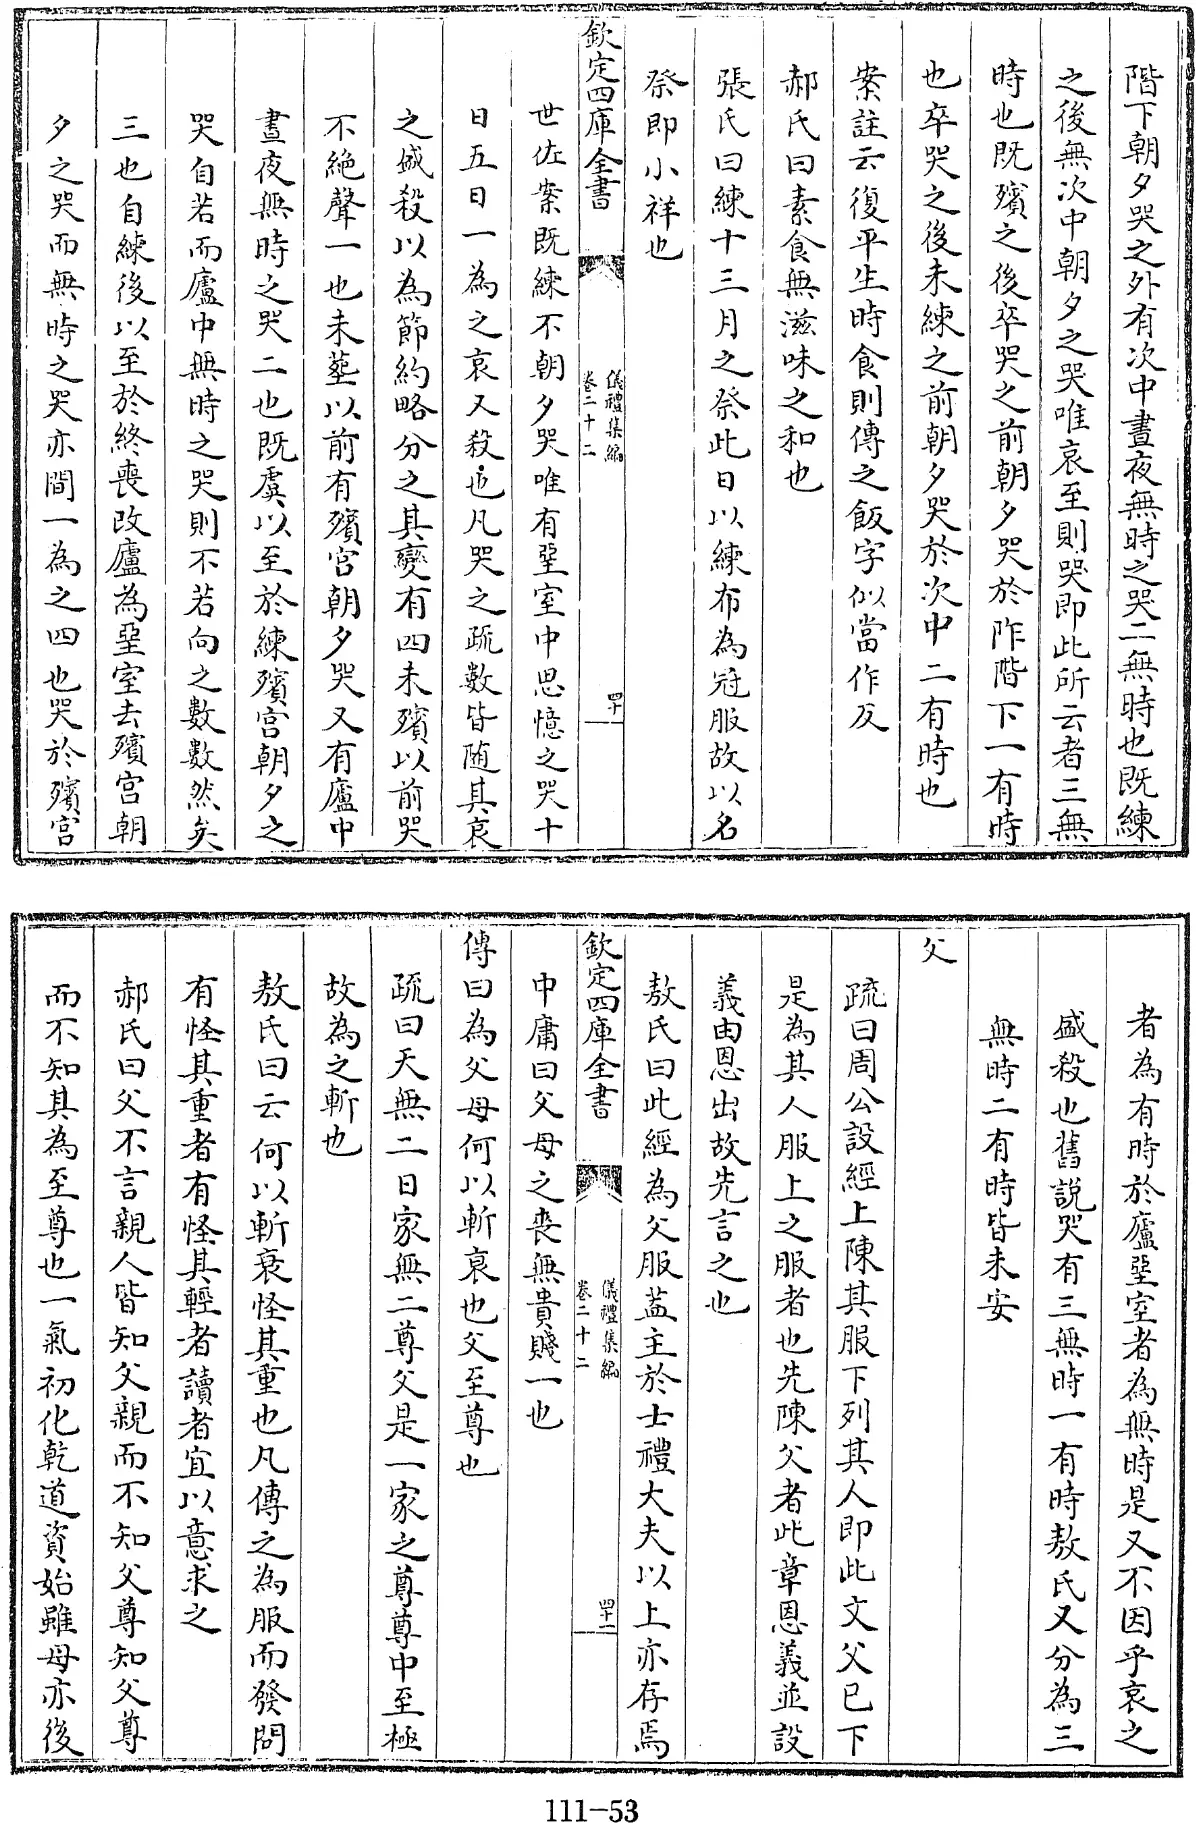 階下朝夕哭之外有次中晝夜無時之哭二無時也既練
之後無次中朝夕之哭唯哀至則哭即此所云者三無
時也既殯之後卒哭之前朝夕哭於阼階下一有時
也卒哭之後未練之前朝夕哭於次中二有時也
案註云復平生時食則傳之飯字似當作反
郝氏曰素食無滋味之和也
張氏曰練十三月之祭此日以練布為冠服故以名
祭即小祥也
欽定四庫全書
儀禮集編
卷二十二
四十
世佐案既練不朝夕哭唯有堊室中思憶之哭十
日五日一為之哀又殺也凡哭之疏數皆隨其哀
之盛殺以為節約略分之其變有四未殯以前哭
不絶聲一也未葬以前有殯宮朝夕哭又有廬中
晝夜無時之哭二也既虞以至於練殯宮朝夕之
哭自若而廬中無時之哭則不若向之數數然矣
三也自練後以至於終喪改廬為堊室去殯宮朝
夕之哭而無時之哭亦間一為之四也哭於殯宮
者為有時於廬堊室者為無時是又不因乎哀之
盛殺也舊説哭有三無時一有時敖氏又分為三
無時二有時皆未安
父
疏曰周公設經上陳其服下列其人即此文父已下
是為其人服上之服者也先陳父者此章恩義並設
義由恩出故先言之也
敖氏曰此經為父服蓋主於士禮大夫以上亦存焉
欽定四庫全書
儀禮集編
卷二十二
四十一
中庸曰父母之喪無貴賤一也
傳曰為父母何以斬衰也父至尊也
疏曰天無二日家無二尊父是一家之尊尊中至極
故為之斬也
敖氏曰云何以斬衰怪其重也凡傳之為服而發問
有怪其重者有怪其輕者讀者宜以意求之
郝氏曰父不言親人皆知父親而不知父尊知父尊
而不知其為至尊也一氣初化乾道資始雖母亦後
111-53